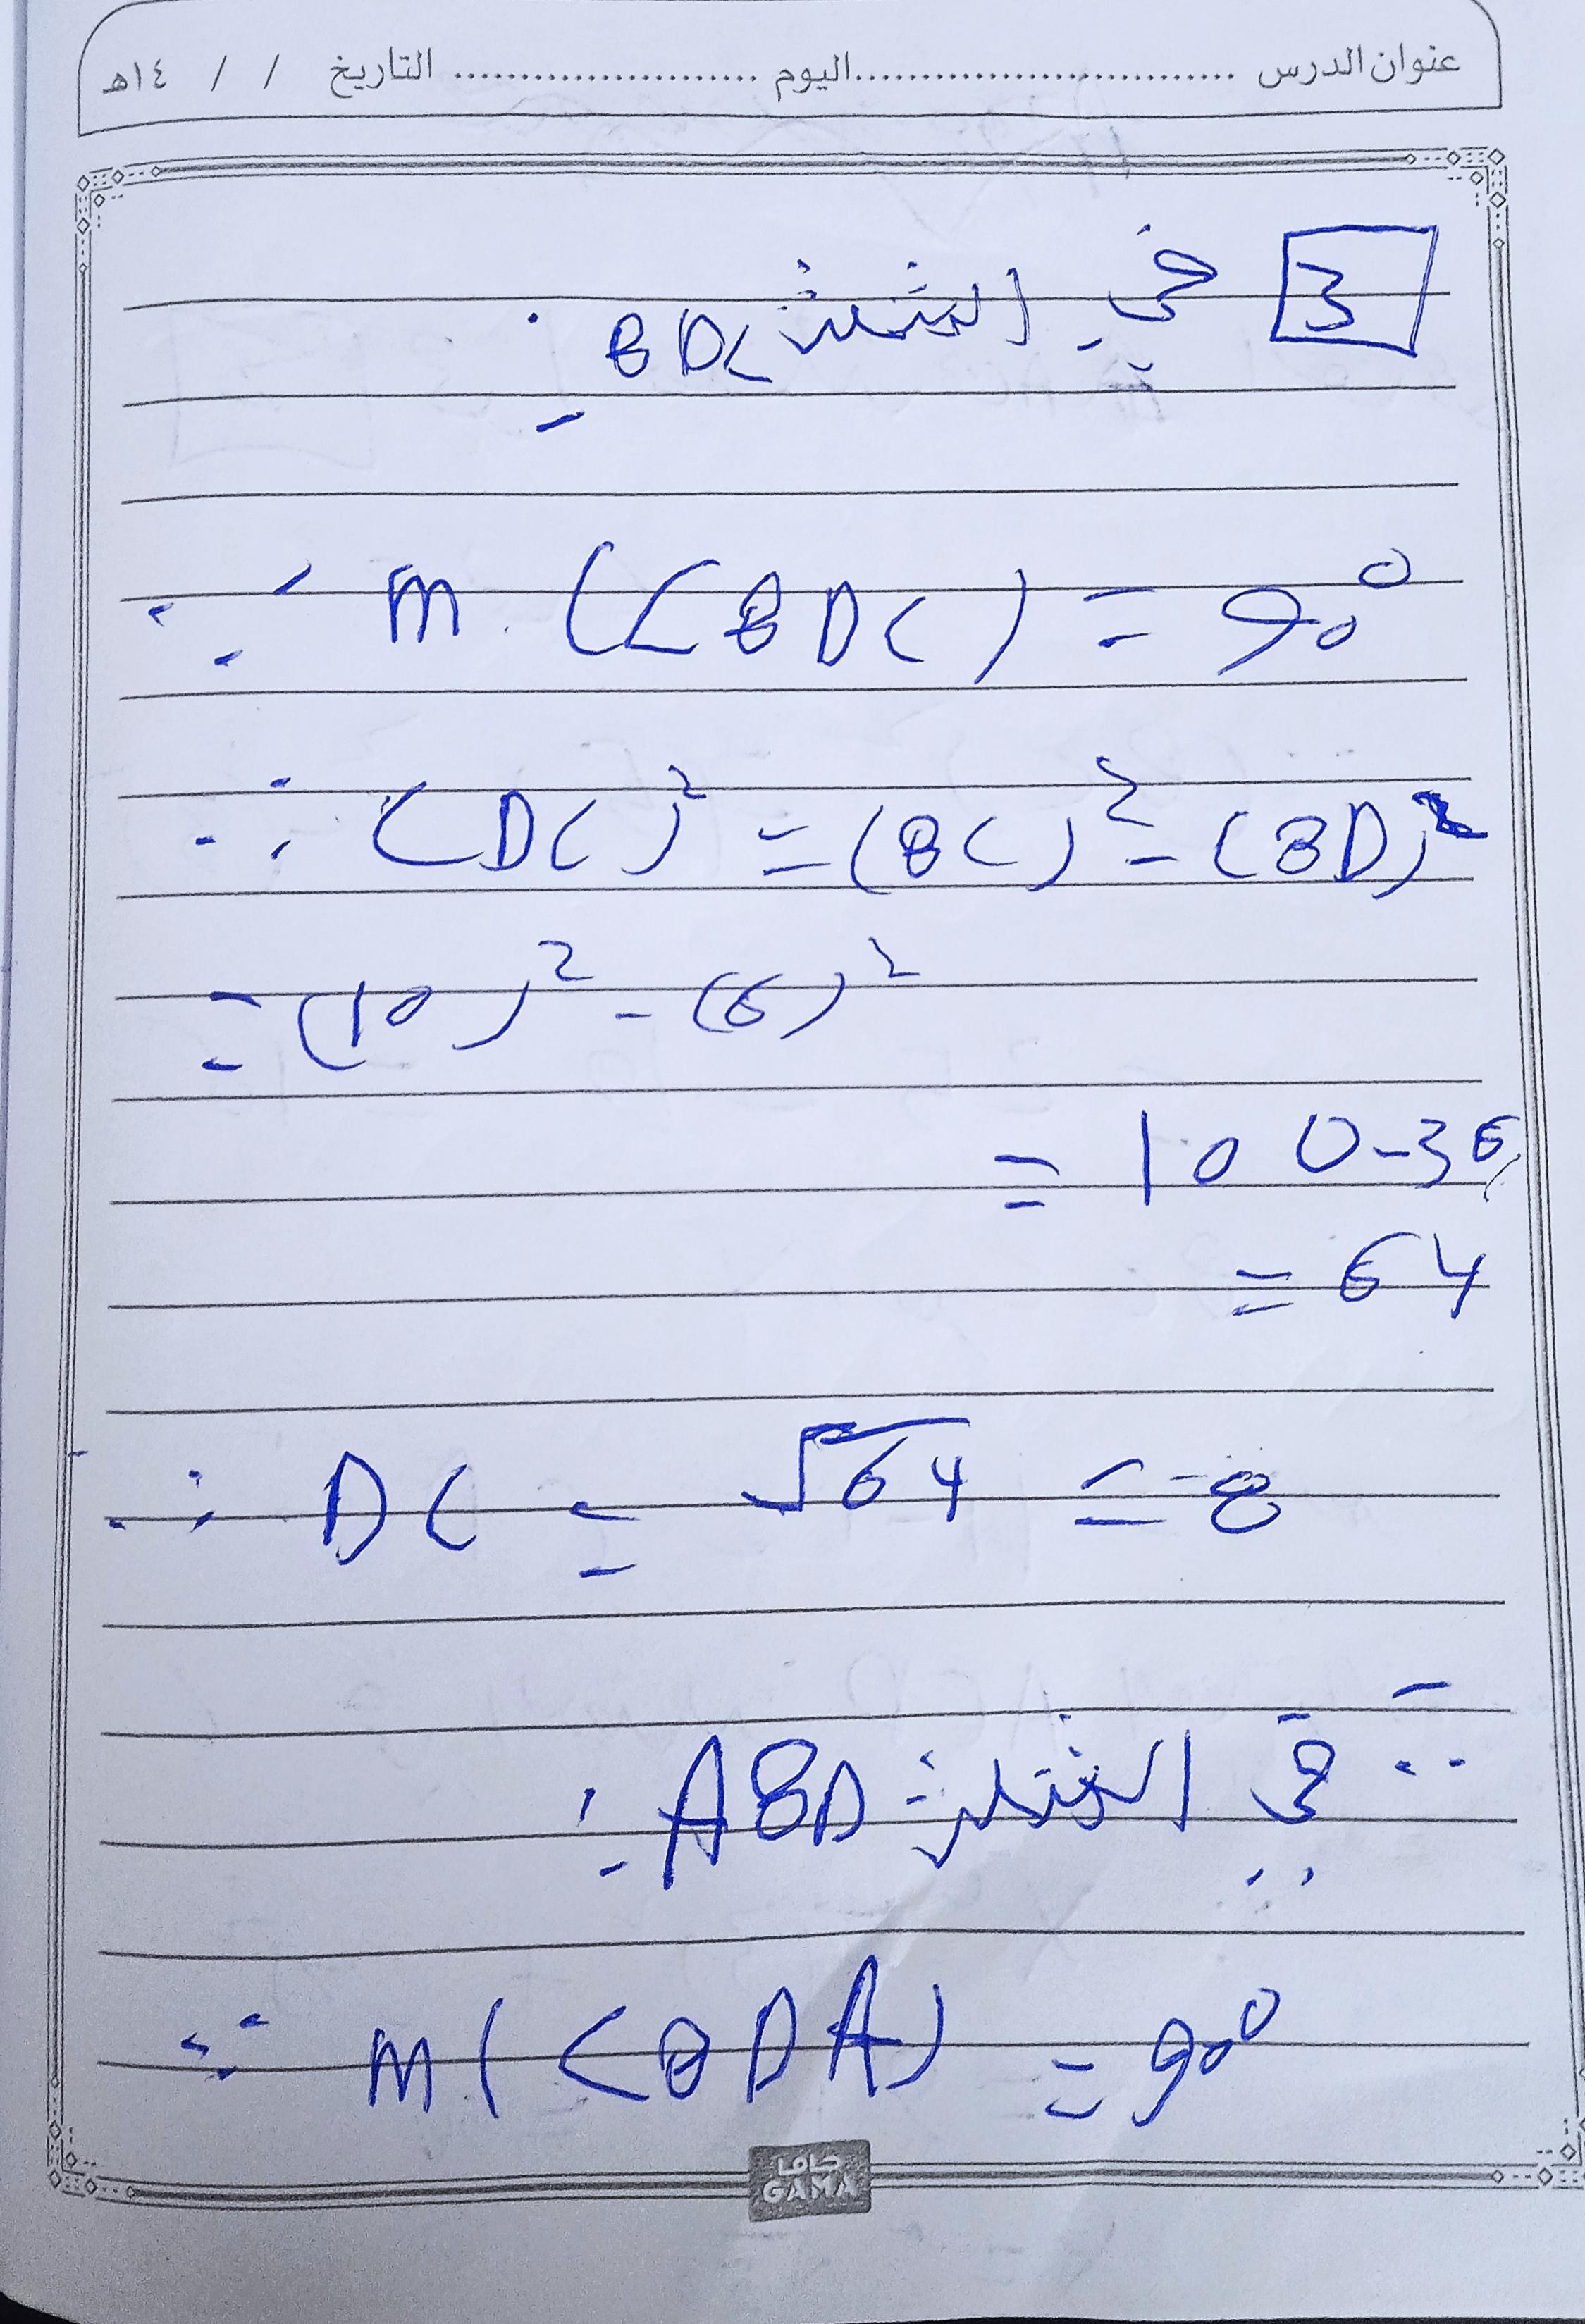 عنوان الدرس ............................ اليوم ........................ التاريخ / / ١٤هـ
3 في المثلث BDC :
∵ m (∠BDC) = 90°
∴ (DC)² = (BC)² - (BD)²
= (10)² - (6)²
= 100-36
= 64
∴ DC = √64 = 8
∵ في المثلث ABD :
∵ m(∠BDA) = 90°
جاما
GAMA